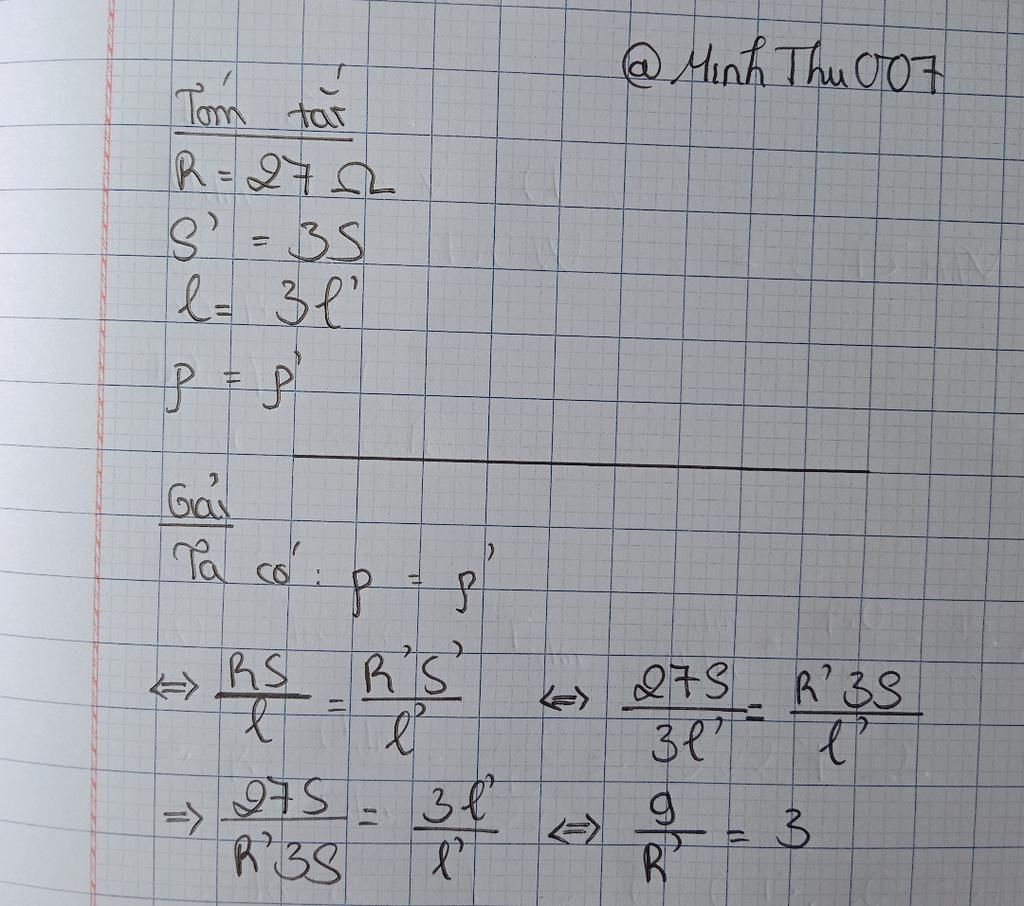 @MinhThu007
Tóm tắt
R = 27 Ω
S' = 3S
l = 3l'
ρ = ρ'
Giải
Ta có: ρ = ρ'
⇔ RS/l = R'S'/l' ⇔ 27S/3l' = R'3S/l'
⇒ 27S/R'3S = 3l'/l' ⇔ 9/R' = 3